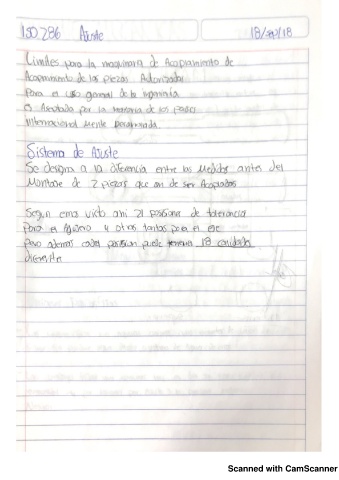 ISO 286 Ajuste 18/ /18
Limites para la maquinaria de Acoplamiento de
Acoplamiento de las piezas Autorizadas
Para el uso general de la
Aceptada por la mayoria de los
Internacional Mente
Sistema de Ajuste
Se designa a la diferencia entre las Medidas antes del
Montaje de 2 piezas que an de ser Acopladas
Segun emos visto ahi 21 posiciones de tolerancia
Para el Agujero y otras tantas para el eje
Pero ademas cada posision puede 18 calidades
diferente
Scanned with CamScanner